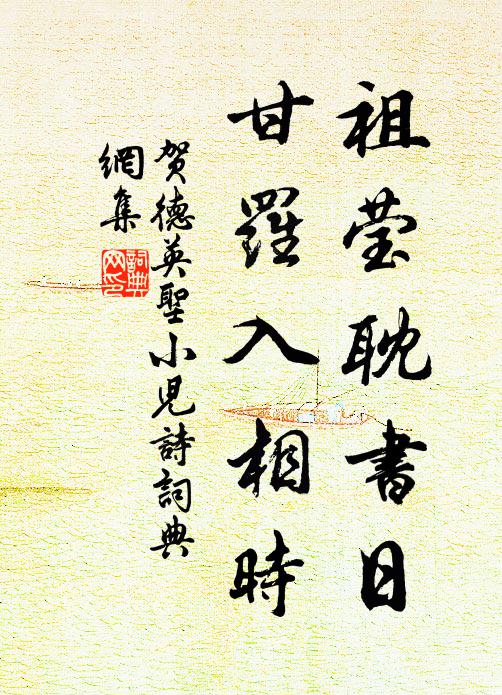 祖莹耽書日
甘羅入相時
贺德英聖小児詩詞典
網集
詞典
网印